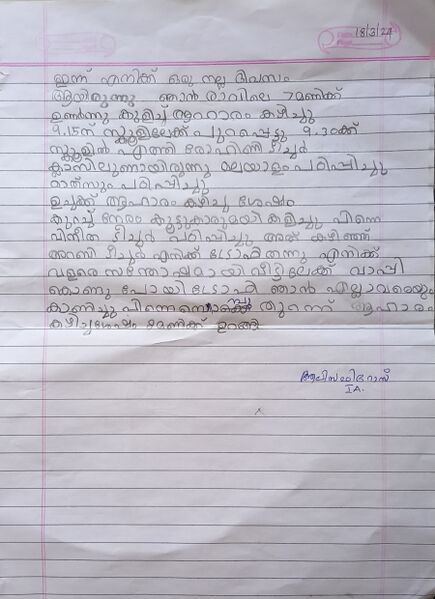 18/3/24
ഇന്ന് എനിക്ക് ഒരു നല്ല ദിവസം
ആയിരുന്നു ഞാൻ രാവിലെ 7മണിക്ക്
ഉണർന്നു കുളിച്ച് ആഹാരം കഴിച്ചു
9.15ന് സ്കൂളിലേക്ക് പുറപ്പെട്ടു 9.30ക്ക്
സ്കൂളിൽ എത്തി രോഹിണി ടീച്ചർ
ക്ലാസിലുണായിരുന്നു മലയാളം പഠിപ്പിച്ചു
മാത്സും പഠിപ്പിച്ചു
ഉച്ചക്ക് ആഹാരം കഴിച്ചു ശേഷം
കുറച്ച് നേരം കൂട്ടുകാരുമായി കളിച്ചു പിന്നെ
വിനീത ടീച്ചർ പഠിപ്പിച്ചു അത് കഴിഞ്ഞ്
ടീച്ചർ എനിക്ക് ട്രോഫി തന്നു എനിക്ക്
വളരെ സന്തോഷമായി വീട്ടിലേക്ക് വാപ്പി
കൊണ്ടു പോയി ട്രോഫി ഞാൻ എല്ലാവരെയും
കാണിച്ചു പിന്നെ തുറന്ന് ആഹാരം
കഴിച്ചശേഷം മണിക്ക് ഉറങ്ങി
IA.